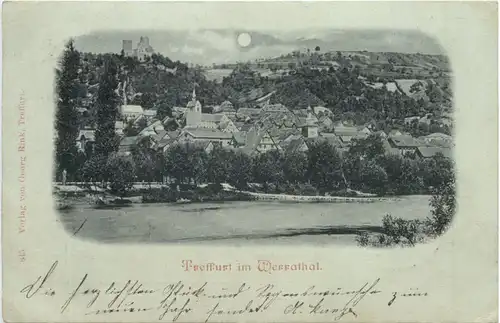 Verlag von Georg Rink, Treffurt.
Treffurt im Werrathal.
Die herzlichsten Glück und Segenswünsche zum
neuen Jahr sendet